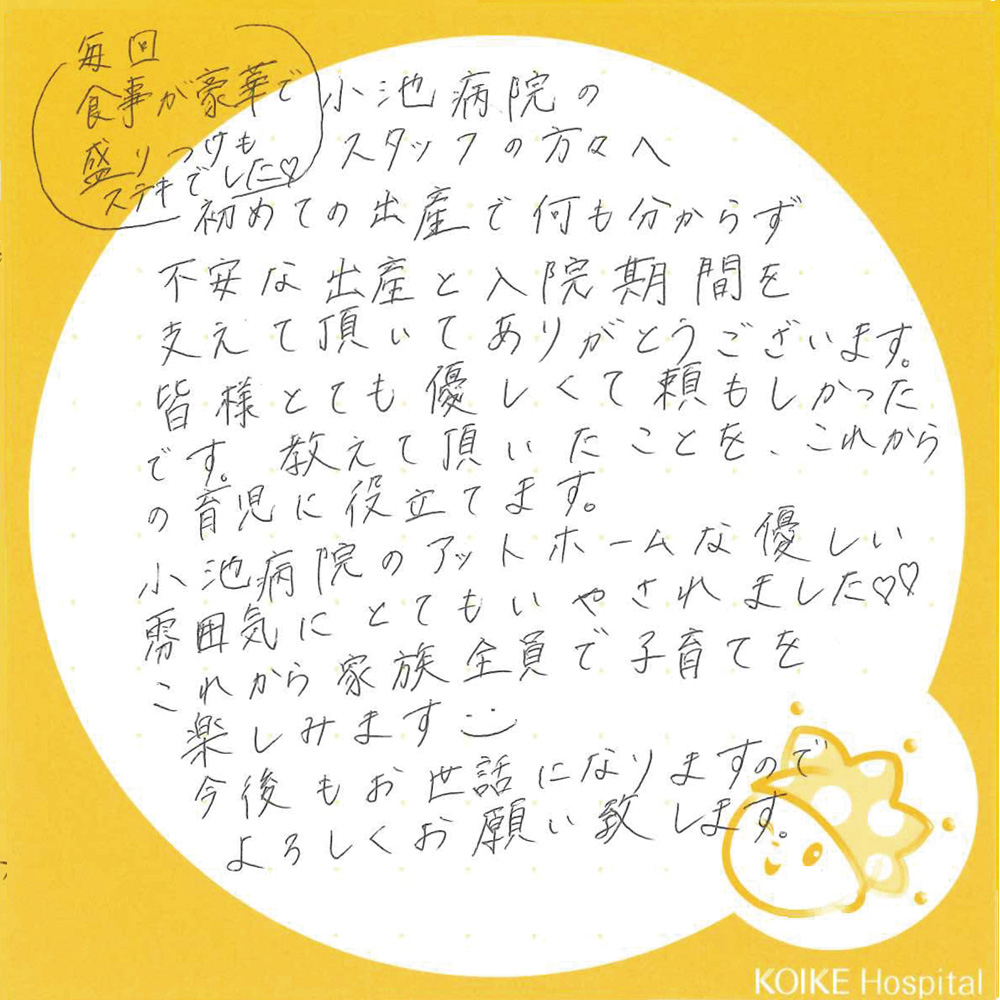 毎回
食事が豪華で
盛りつけも
ステキでした♡
小池病院の
スタッフの方々へ
初めての出産で何も分からず
不安な出産と入院期間を
支えて頂いてありがとうございます。
皆様とても優しくて頼もしかった
です。教えて頂いたことを、これから
の育児に役立てます。
小池病院のアットホームな優しい
雰囲気にとてもいやされました♡♡
これから家族全員で子育てを
楽しみます
今後もお世話になりますので
よろしくお願い致します。
KOIKE Hospital